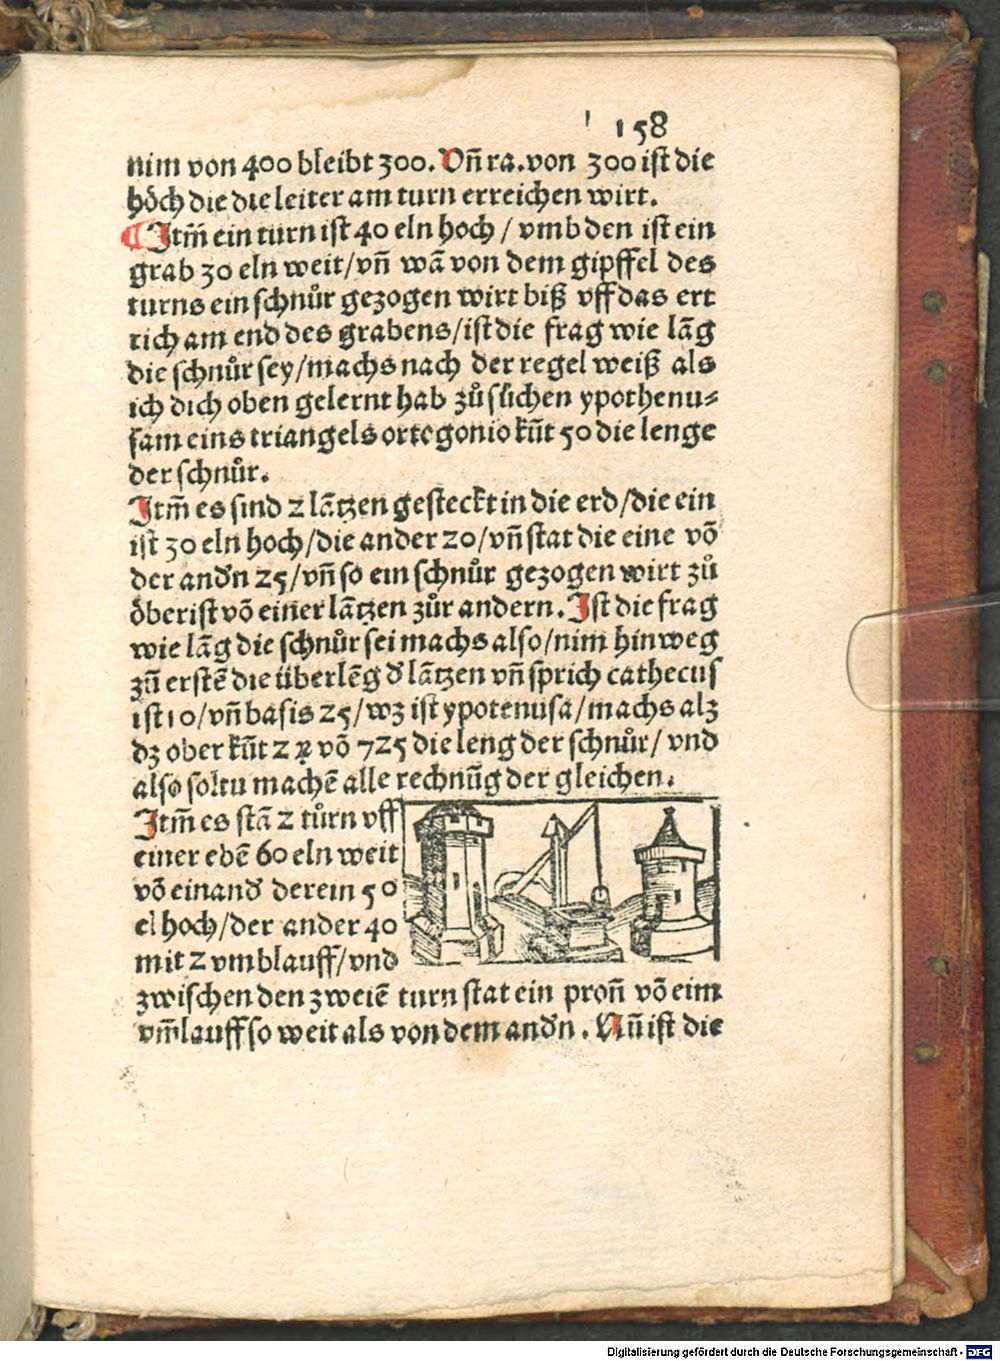 158
nim von 400 bleibt 300. Vñ ra. von 300 ist die
höch die die leiter am turn erreichen wirt.
¶ Itm̃ ein turn ist 40 eln hoch / vmb den ist ein
grab 30 eln weit/vñ wã von dem gipffel des
turns ein schnůr gezogen wirt biß vff das ert
rich am end des grabens/ist die frag wie lãg
die schnůr sey/machs nach der regel weiß als
ich dich oben gelernt hab zů sůchen ypothenu⸗
sam eins triangels ortogonio kũt 50 die lenge
der schnůr.
Itm̃ es sind 2 lãtzen gesteckt in die erd/die ein
ist 30 eln hoch/die ander 20/vñ stat die eine võ
der andn 25/vñ so ein schnůr gezogen wirt zů
öberist võ einer lãtzen zůr andern. Ist die frag
wie lãg die schnůr sei machs also/nim hinweg
zũ erstẽ die überlẽg d lãtzen vñ sprich cathecus
ist 10/vñ basis 25/wz ist ypotenusa/machs alz
dz ober kũt 2 ꝛ võ 725 die leng der schnůr/ vnd
also soltu machẽ alle rechnũg der gleichen.
Itm̃ es stã 2 tůrn vff
einer ebẽ 60 eln weit
võ einand der ein 50
el hoch/der ander 40
mit 2 vmblauff/vnd
zwischen den zweiẽ turn stat ein proñ võ eim
vm̃lauff so weit als von dem andn. Nũ ist die
Digitalisierung gefördert durch die Deutsche Forschungsgemeinschaft - DFG